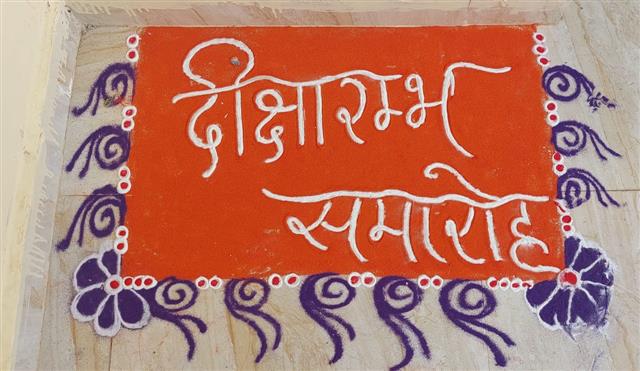 दीक्षारम्भ
समारोह